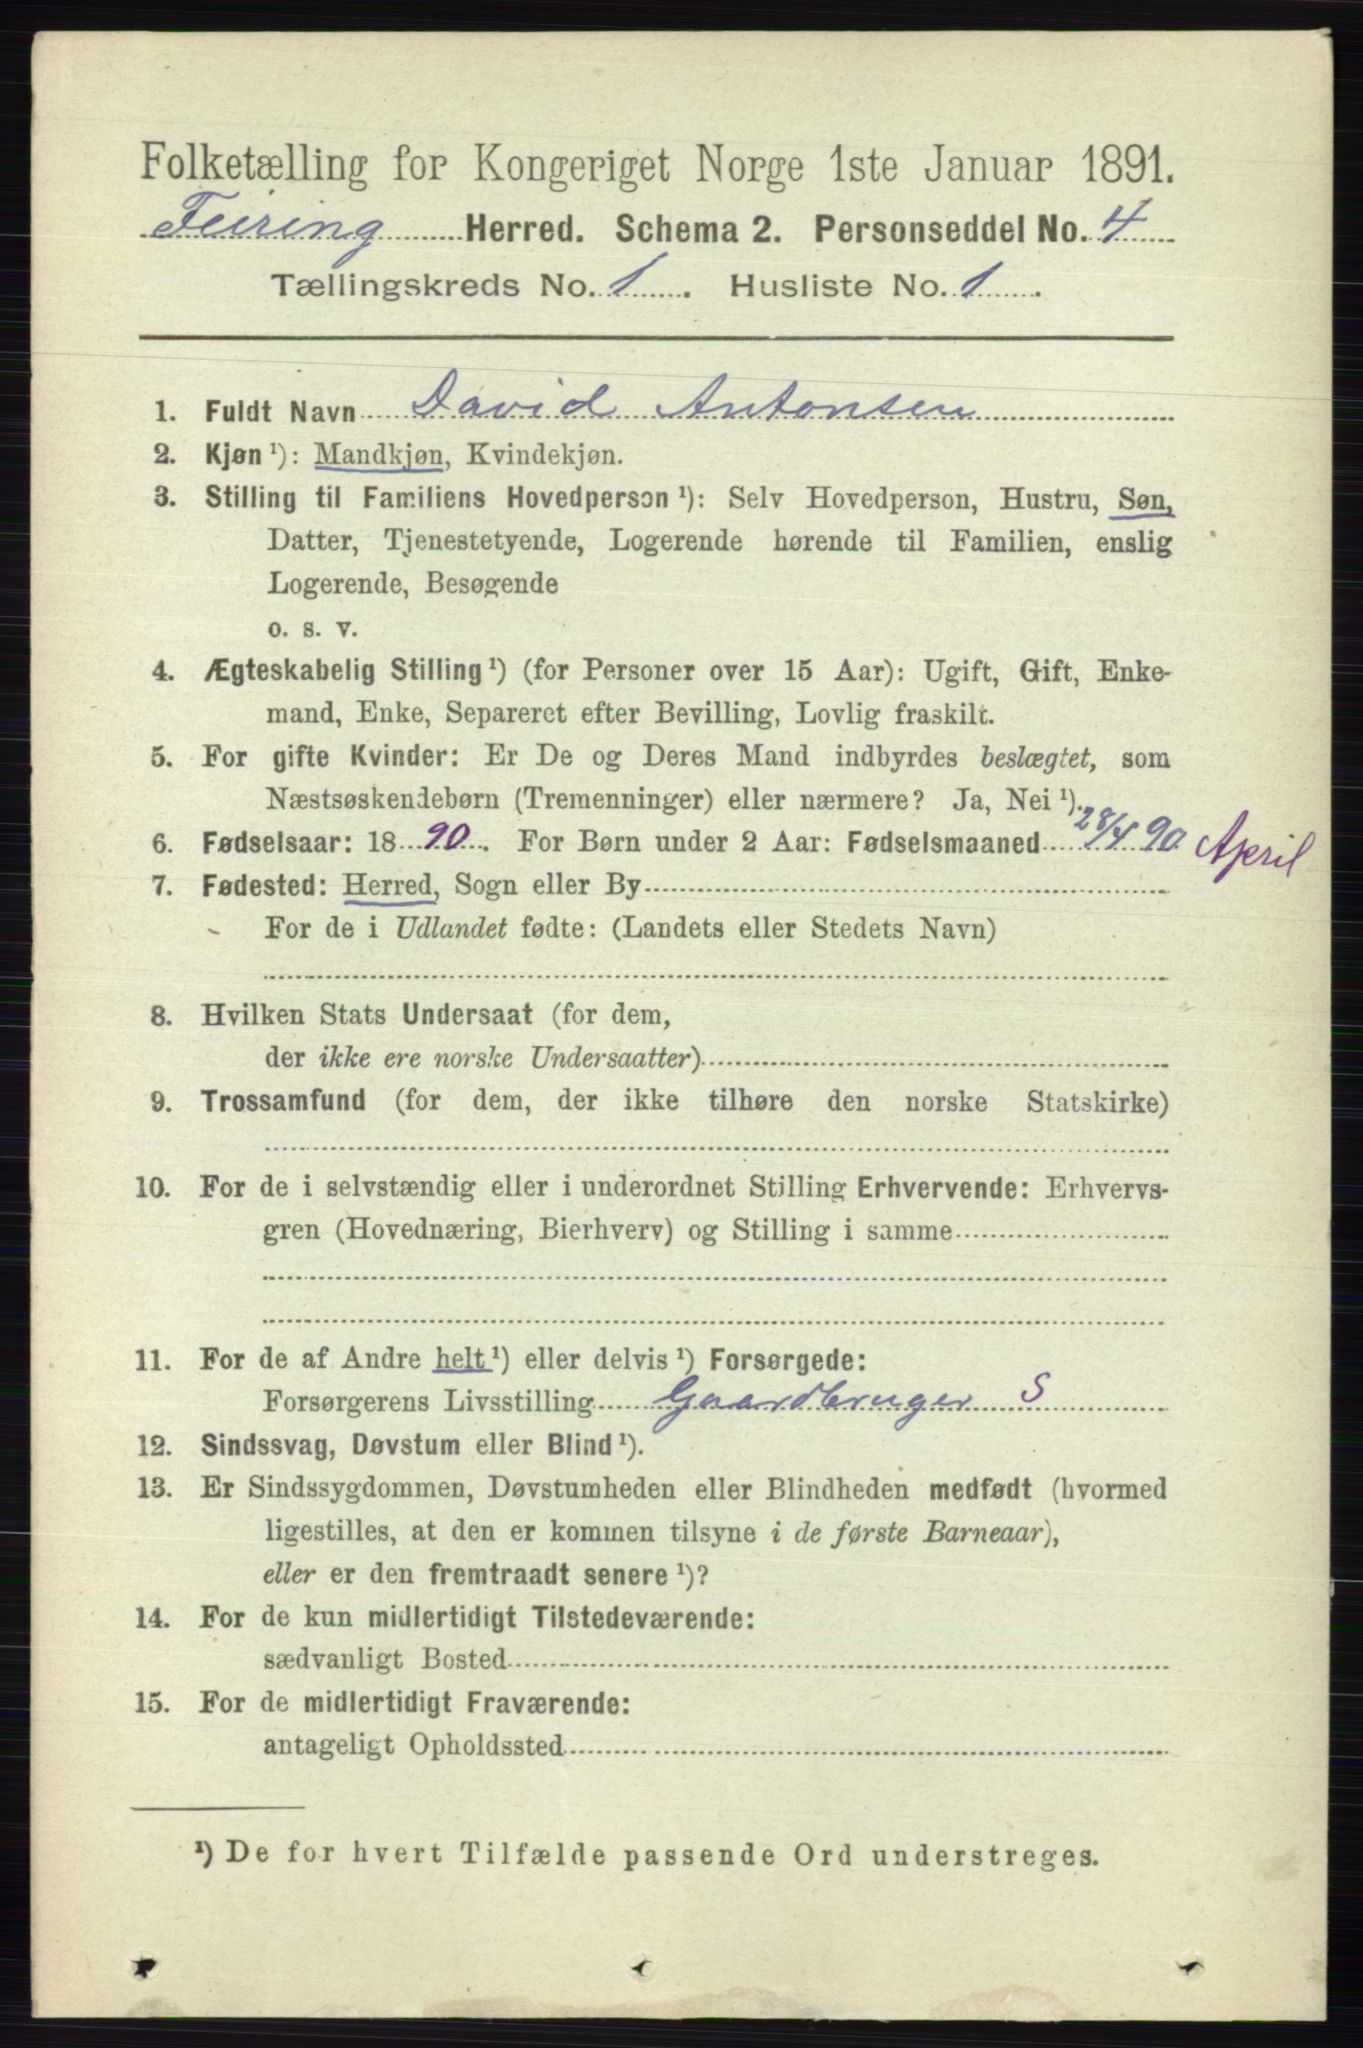 Folketælling for Kongeriget Norge 1ste Januar 1891.
Feiring Herred. Schema 2. Personseddel No. 4
Tællingskreds No. 1. Husliste No. 1.
1. Fuldt Navn David Antonsen
2. Kjøn ¹): Mandkjøn, Kvindekjøn.
3. Stilling til Familiens Hovedperson ¹): Selv Hovedperson, Hustru, Søn,
Datter, Tjenestetyende, Logerende hørende til Familien, enslig
Logerende, Besøgende
o. s. v.
4. Ægteskabelig Stilling ¹) (for Personer over 15 Aar): Ugift, Gift, Enke-
mand, Enke, Separeret efter Bevilling, Lovlig fraskilt.
5. For gifte Kvinder: Er De og Deres Mand indbyrdes beslægtet, som
Næstsøskendebørn (Tremenninger) eller nærmere? Ja, Nei ¹).
6. Fødselsaar: 1890. For Børn under 2 Aar: Fødselsmaaned 28/4 90 April
7. Fødested: Herred, Sogn eller By
For de i Udlandet fødte: (Landets eller Stedets Navn)
8. Hvilken Stats Undersaat (for dem,
der ikke ere norske Undersaatter)
9. Trossamfund (for dem, der ikke tilhøre den norske Statskirke)
10. For de i selvstændig eller i underordnet Stilling Erhvervende: Erhvervs-
gren (Hovednæring, Bierhverv) og Stilling i samme
11. For de af Andre helt ¹) eller delvis ¹) Forsørgede:
Forsørgerens Livsstilling Gaardbruger S
12. Sindssvag, Døvstum eller Blind ¹).
13. Er Sindssygdommen, Døvstumheden eller Blindheden medfødt (hvormed
ligestilles, at den er kommen tilsyne i de første Barneaar),
eller er den fremtraadt senere ¹)?
14. For de kun midlertidigt Tilstedeværende:
sædvanligt Bosted
15. For de midlertidigt Fraværende:
antageligt Opholdssted
¹) De for hvert Tilfælde passende Ord understreges.